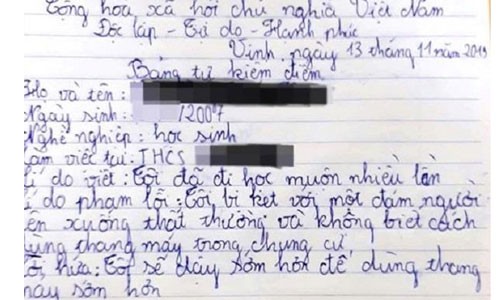 Cộng hòa xã hội chủ nghĩa Việt Nam
Độc lập - Tự do - Hạnh phúc
Vinh, ngày 13 tháng 11 năm 2019
Bảng tự kiểm điểm
Họ và tên:
Ngày sinh: /2007
Nghề nghiệp: học sinh
Làm việc tại: THCS
Lí do viết: Tôi đã đi học muộn nhiều lần
Lí do phạm lỗi: Tôi bị kẹt với một đám người
lên xuống thất thường và không biết cách
dùng thang máy trong chung cư
Lời hứa: Tôi sẽ dậy sớm hơn để dùng thang
máy sớm hơn